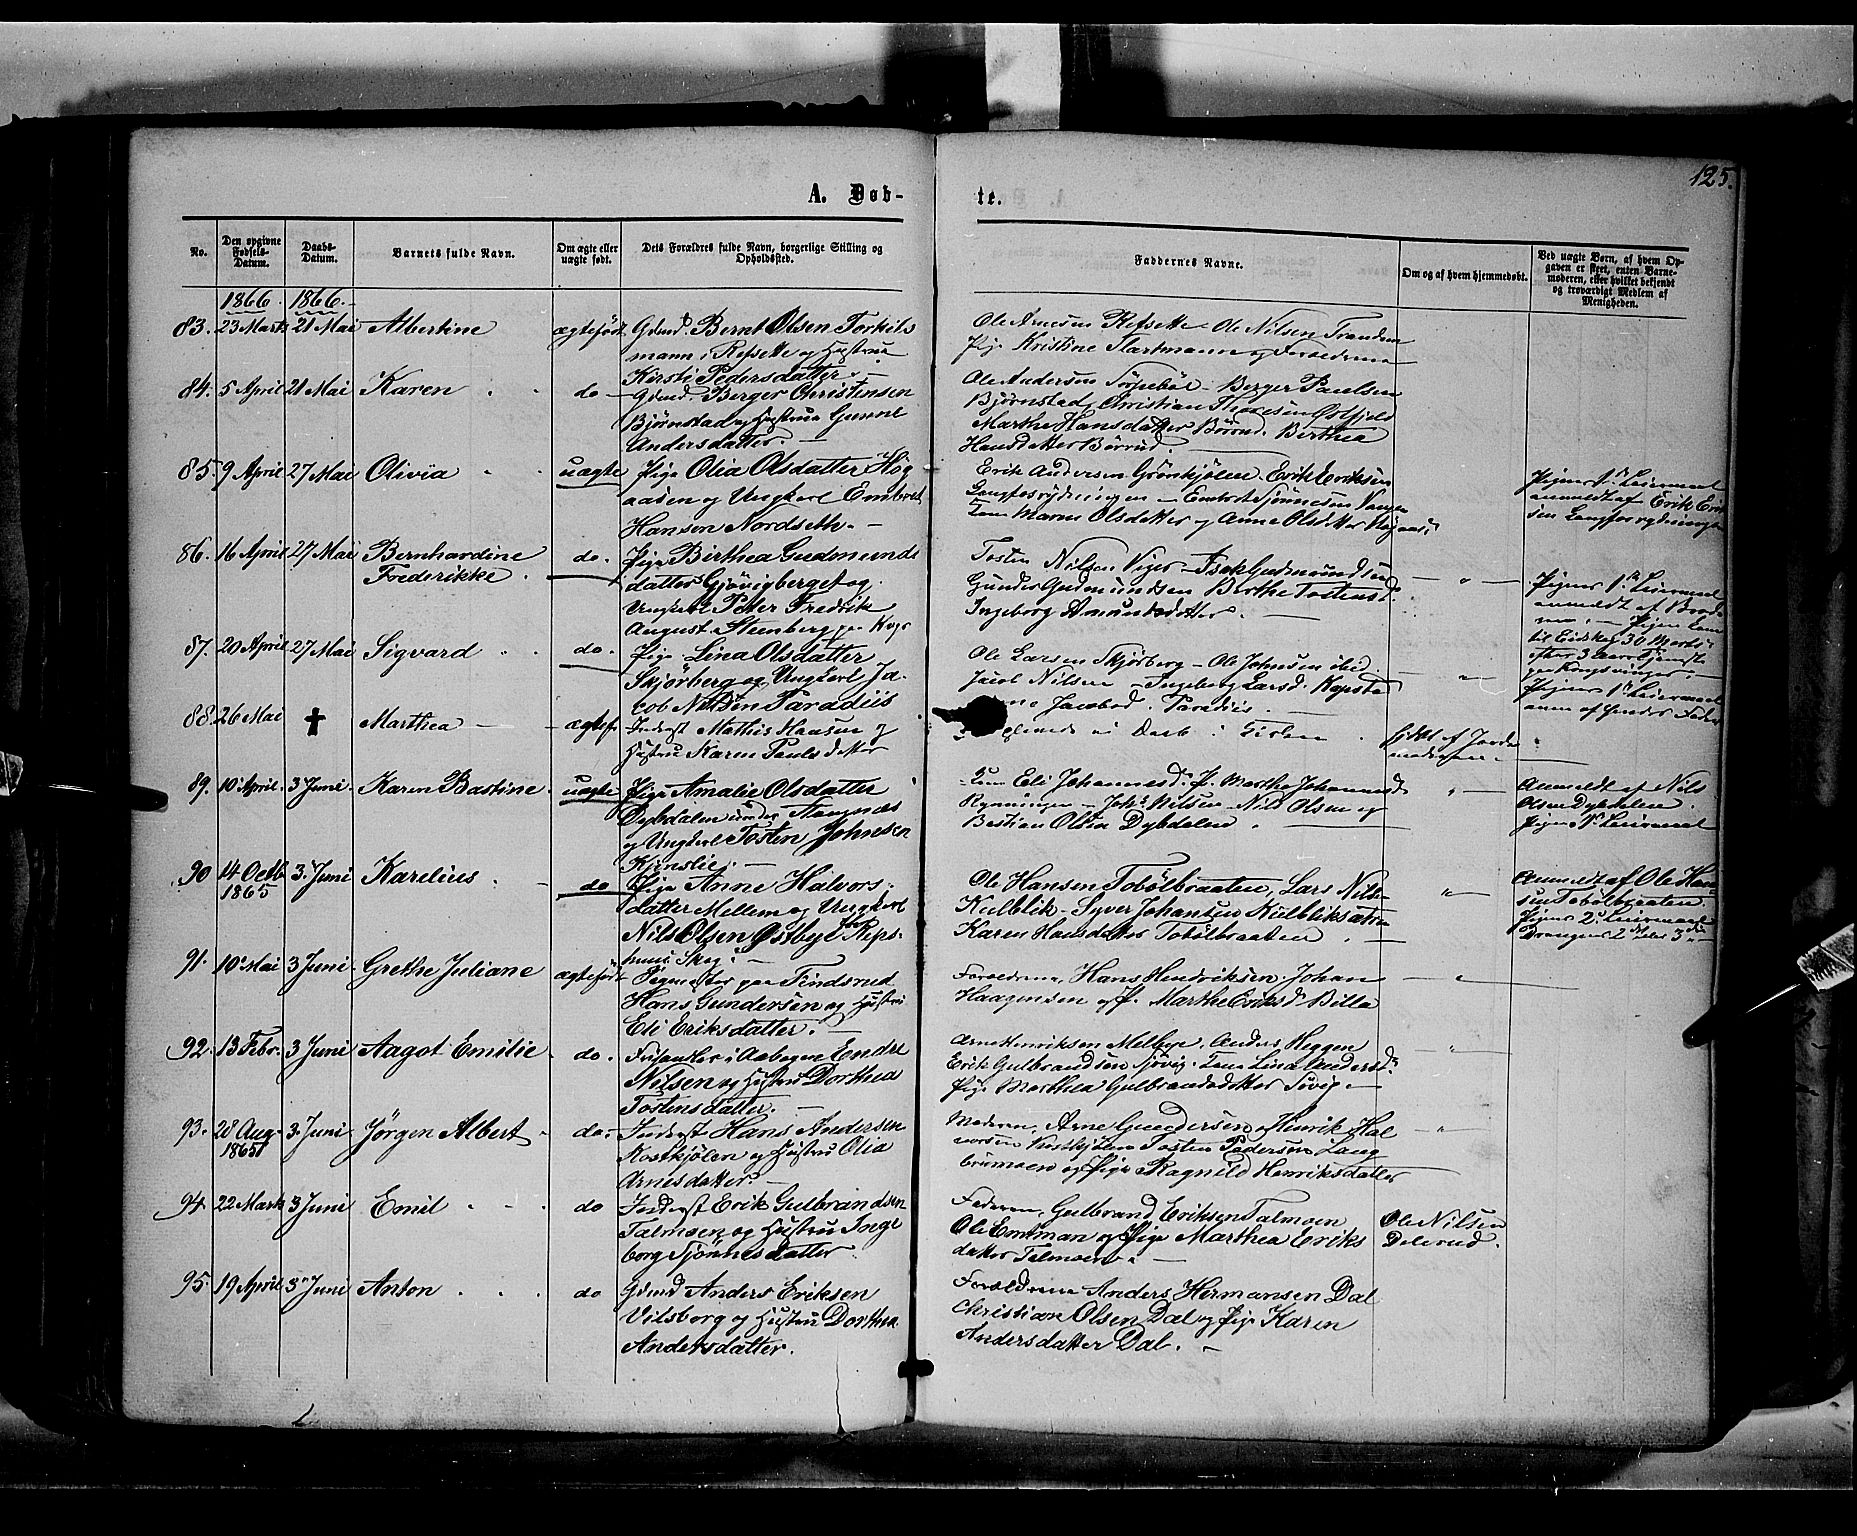 125.
A. Døb-
te.
No.
Den opgivne Fødsels-Datum.
Daabs-Datum.
Barnets fulde Navn.
Om ægte eller uægte født.
Dets Forældres fulde Navn, borgerlige Stilling og Opholdssted.
Faddernes Navne.
Om og af hvem hjemmedøbt.
Ved uægte Børn, af hvem Opgaven er skeet, enten Barnemoderen, eller hvilket bekjendt og troværdigt Medlem af Menigheden.
1866. 1866.
83. 23 Marts 21 Mai Albertine ægtefødt Gdmd Bernt Olsen Torkils
mann i Refsette og Hustrue
Kirsti Pedersdatter.
Ole Arnesen Refsette Ole Nilsen Tranden
Pige Kristine Hartmann og Forældrene
84. 5 April 21 Mai Karen do Gdmd Berger Christensen
Bjørnstad og Hustrue Gunne
Andersdatter.
Ole Andersen Torpebøl Berger Paulsen
Bjørnstad Christian Thoresen
Marthe Hansdatter Børrud. Berthea
Hansdatter Børrud.
85. 9 April 27 Mai Olivia uægte Pige Olia Olsdatter Høg
aasen og Ungkarl Embret
Hansen Nordseth.
Erik Andersen Grønkjølen Erik Eriksen
Langfosrydningen Embret Tjønnesen
Maren Olsdatter og Anne Olsdatter
Pigens 1ste Leiermaal
anmeldt af Erik Erik
sen Langfosrydningen
86. 16 April 27 Mai Bernhardine
Frederikke.
do. Pige Birthea Gudmunds
datter Gjøvigberget og
Ungkarl Peter Fredrik
August Steenberg paa Kogs
Tosten Nilsen Viger Isak Gudmundsen
Gunder Gudmundsen Berthe Tostensd.
Ingeborg Amundsdatter.
Pigens 1ste Leiermaal
anmeldt af
til Eidskog 30 Marts
efter 3 Aars Tjeneste
paa Kongsvinger
87. 20 April 27 Mai Sigvard do. Pige Lina Olsdatter
Skjørberg og Ungkarl Ja-
cob Nilsen Paradiis
Ole Larsen Skjørberg Ole Johnsen ibid.
Jacob Nilsen Ingeborg Larsd. Kopstad
Jacobsd. Paradiis.
Pigens 1ste Leiermaal
88. 26 Mai ✝ Marthea ægtef. Inderst Mathis Hansen og
Hustru Karen Paulsdatter
89. 10 April. 3 Juni Karen Bastine uægte Pige Amalie Olsdatter
Dybdalen under
og Ungkarl Tosten Johnsen
Kinslie.
Eli Johannesd. P. Marthe Johannesd.
Rynningen Joh. Nilsen Nils Olsen og
Bastian Olsen Dybdalen.
Anmeldt af Nils
Olsen Dybdalen.
Pigens 1ste Leiermaal
90 14 Octb. 1865 3 Juni Karelius do Pige Anne Halvors-
datter Mellem og Ungkarl
Nils Olsen Østbye Reps-
huus Skog.
Ole Hansen Tobølbraaten, Lars Nils
Kulblik Syver Johansen Kulbliksætra
Karen Hansdatter Tobølbraaten.
Anmeldt af Ole Han
sen Tobølbraaten.
Pigens 2d Leiermaal
Drengens 2det eller 3die
91. 10 Mai 3 Juni Grethe Juliane ægtefødt paa Findsrud
Hans Gundersen og Hustru
Eli Eriksdatter.
Forældrene, Hans Hendriksen Johan
Haagensen og P. Marthe Eriksd. Billa
92. 13 Febr. 3 Juni Aagot Emilie do. i Aabogen Endre
Nilsen og Hustru Dorthea
Tostensdatter.
Arne Henriksen Melbye, Anders Heggen
Erik Gulbrandsen Lina Andersd.
Pige Marthea Gulbrandsdatter
93. 28 Aug. 1865 3 Juni Jørgen Albert do. Inderst Hans Andersen
Kostkjølen og Hustru Olia
Arnesdatter.
Moderen, Arne Gundersen, Henrik Hal
vorsen Tosten Pedersen Lang
brumoen og Pige Ragnild Henriksdatter
94. 22 Marts 3 Juni Emil do Inderst Erik Gulbrandsen
Talmoen og Hustru Inge
borg Tjønnesdatter
Faderen, Gulbrand Eriksen Talmoen
Ole Emtman og Pige Marthea Eriks
datter Talmoen.
Ole Nilsen
Delerud.
95. 19 April 3 Juni Anton do Gdmd Anders Eriksen
Vilsborg og Hustru Dorthea
Andersdatter.
Forældrene Anders Hermansen Dal
Christian Olsen Dal og Pige Karen
Andersdatter Dal.